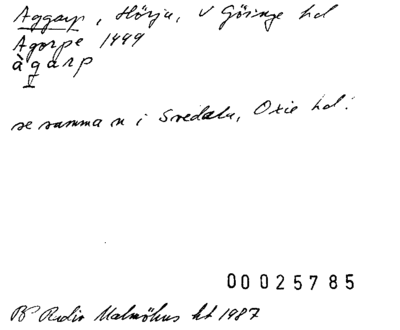 Aggarp, Hörja, V Göinge hd
Agorpe 1449
àgarp
V
se samma n i Svedala, Oxie hd!
00025785
BP Radio Malmöhus ht 1987